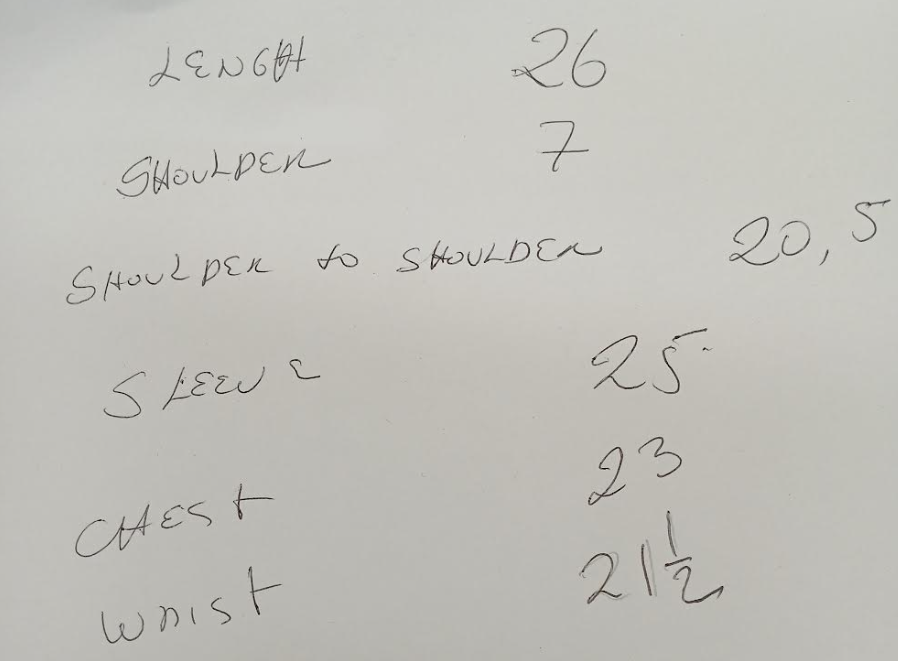 LENGTH 26
SHOULDER 7
SHOULDER to SHOULDER 20,5
SLEEVE 25
CHEST 23
WRIST 21 1/2